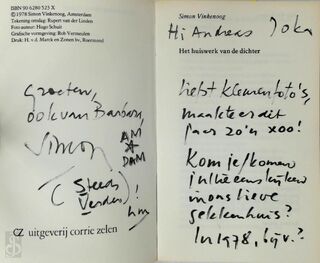 ISBN 90 6280 523 X
© 1978 Simon Vinkenoog, Amsterdam
Tekening omslag: Rupert van der Linden
Foto auteur: Hugo Schuit
Grafische vormgeving: Rob Vermeulen
Druk: H. v.d. Marck en Zonen bv, Roermond
Groeten,
ook van Barbara,
Simon
AM
DAM
(Steeds
Verder)!
CZ uitgeverij corrie zelen
Simon Vinkenoog
Hi Andreas Joka
Het huiswerk van de dichter
hebt kleurenfoto's,
maakte er dit
jaar zo'n 100!
Kom je/komen
in hie eens kijken
mons lieve
gekkenhuis?
In 1978, bijv.?